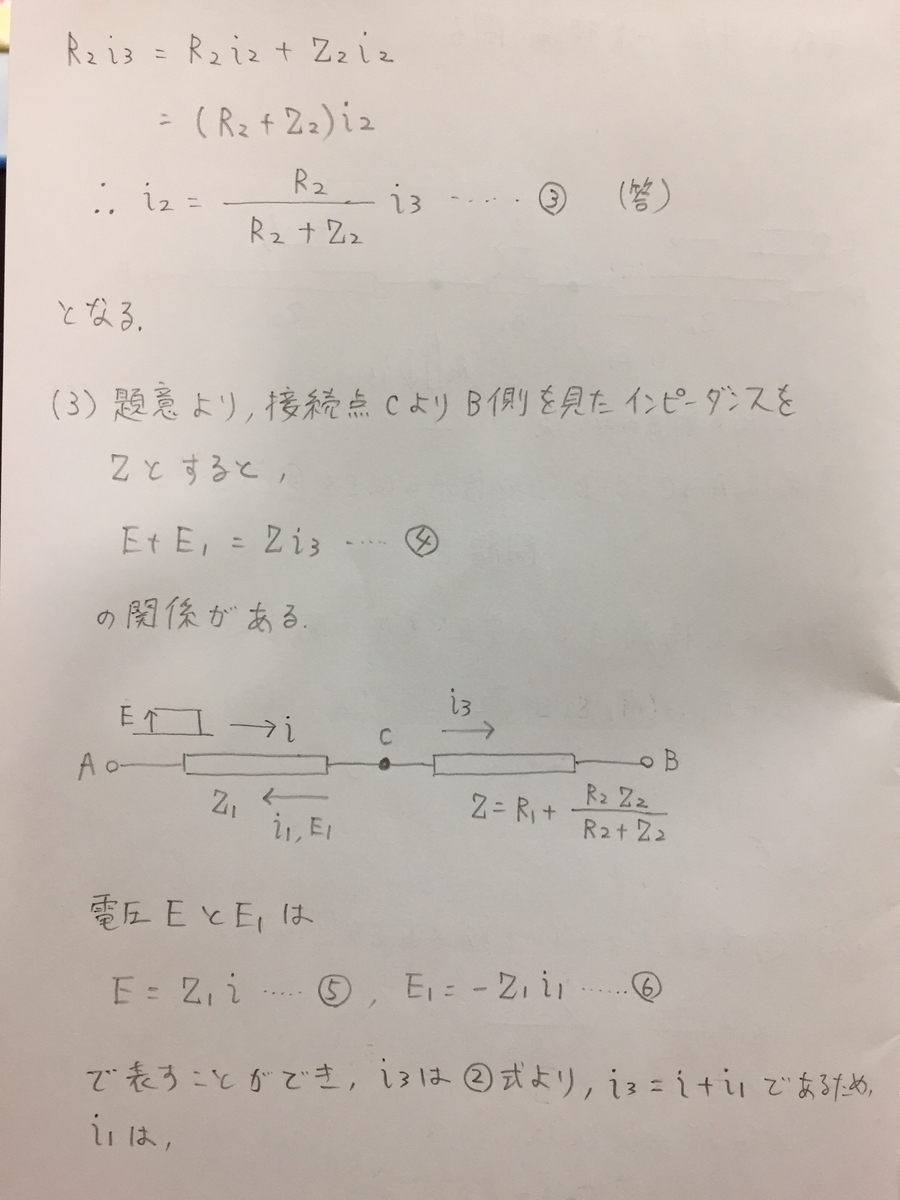 R₂i₃ = R₂i₂ + Z₂i₂
= (R₂+Z₂)i₂
∴ i₂ = R₂/(R₂+Z₂) i₃ ‥‥‥ ③ (答)
となる.
(3) 題意より, 接続点CよりB側を見たインピーダンスを
Zとすると,
E+E₁ = Zi₃ ‥‥ ④
の関係がある.
E↑ →i
i₃
A C B
Z₁ ← Z=R₁+ R₂Z₂/(R₂+Z₂)
i₁, E₁
電圧EとE₁は
E = Z₁i ‥‥‥ ⑤, E₁=-Z₁i₁ ‥‥‥⑥
で表すことができ, i₃は②式より, i₃=i+i₁であるため,
i₁は,